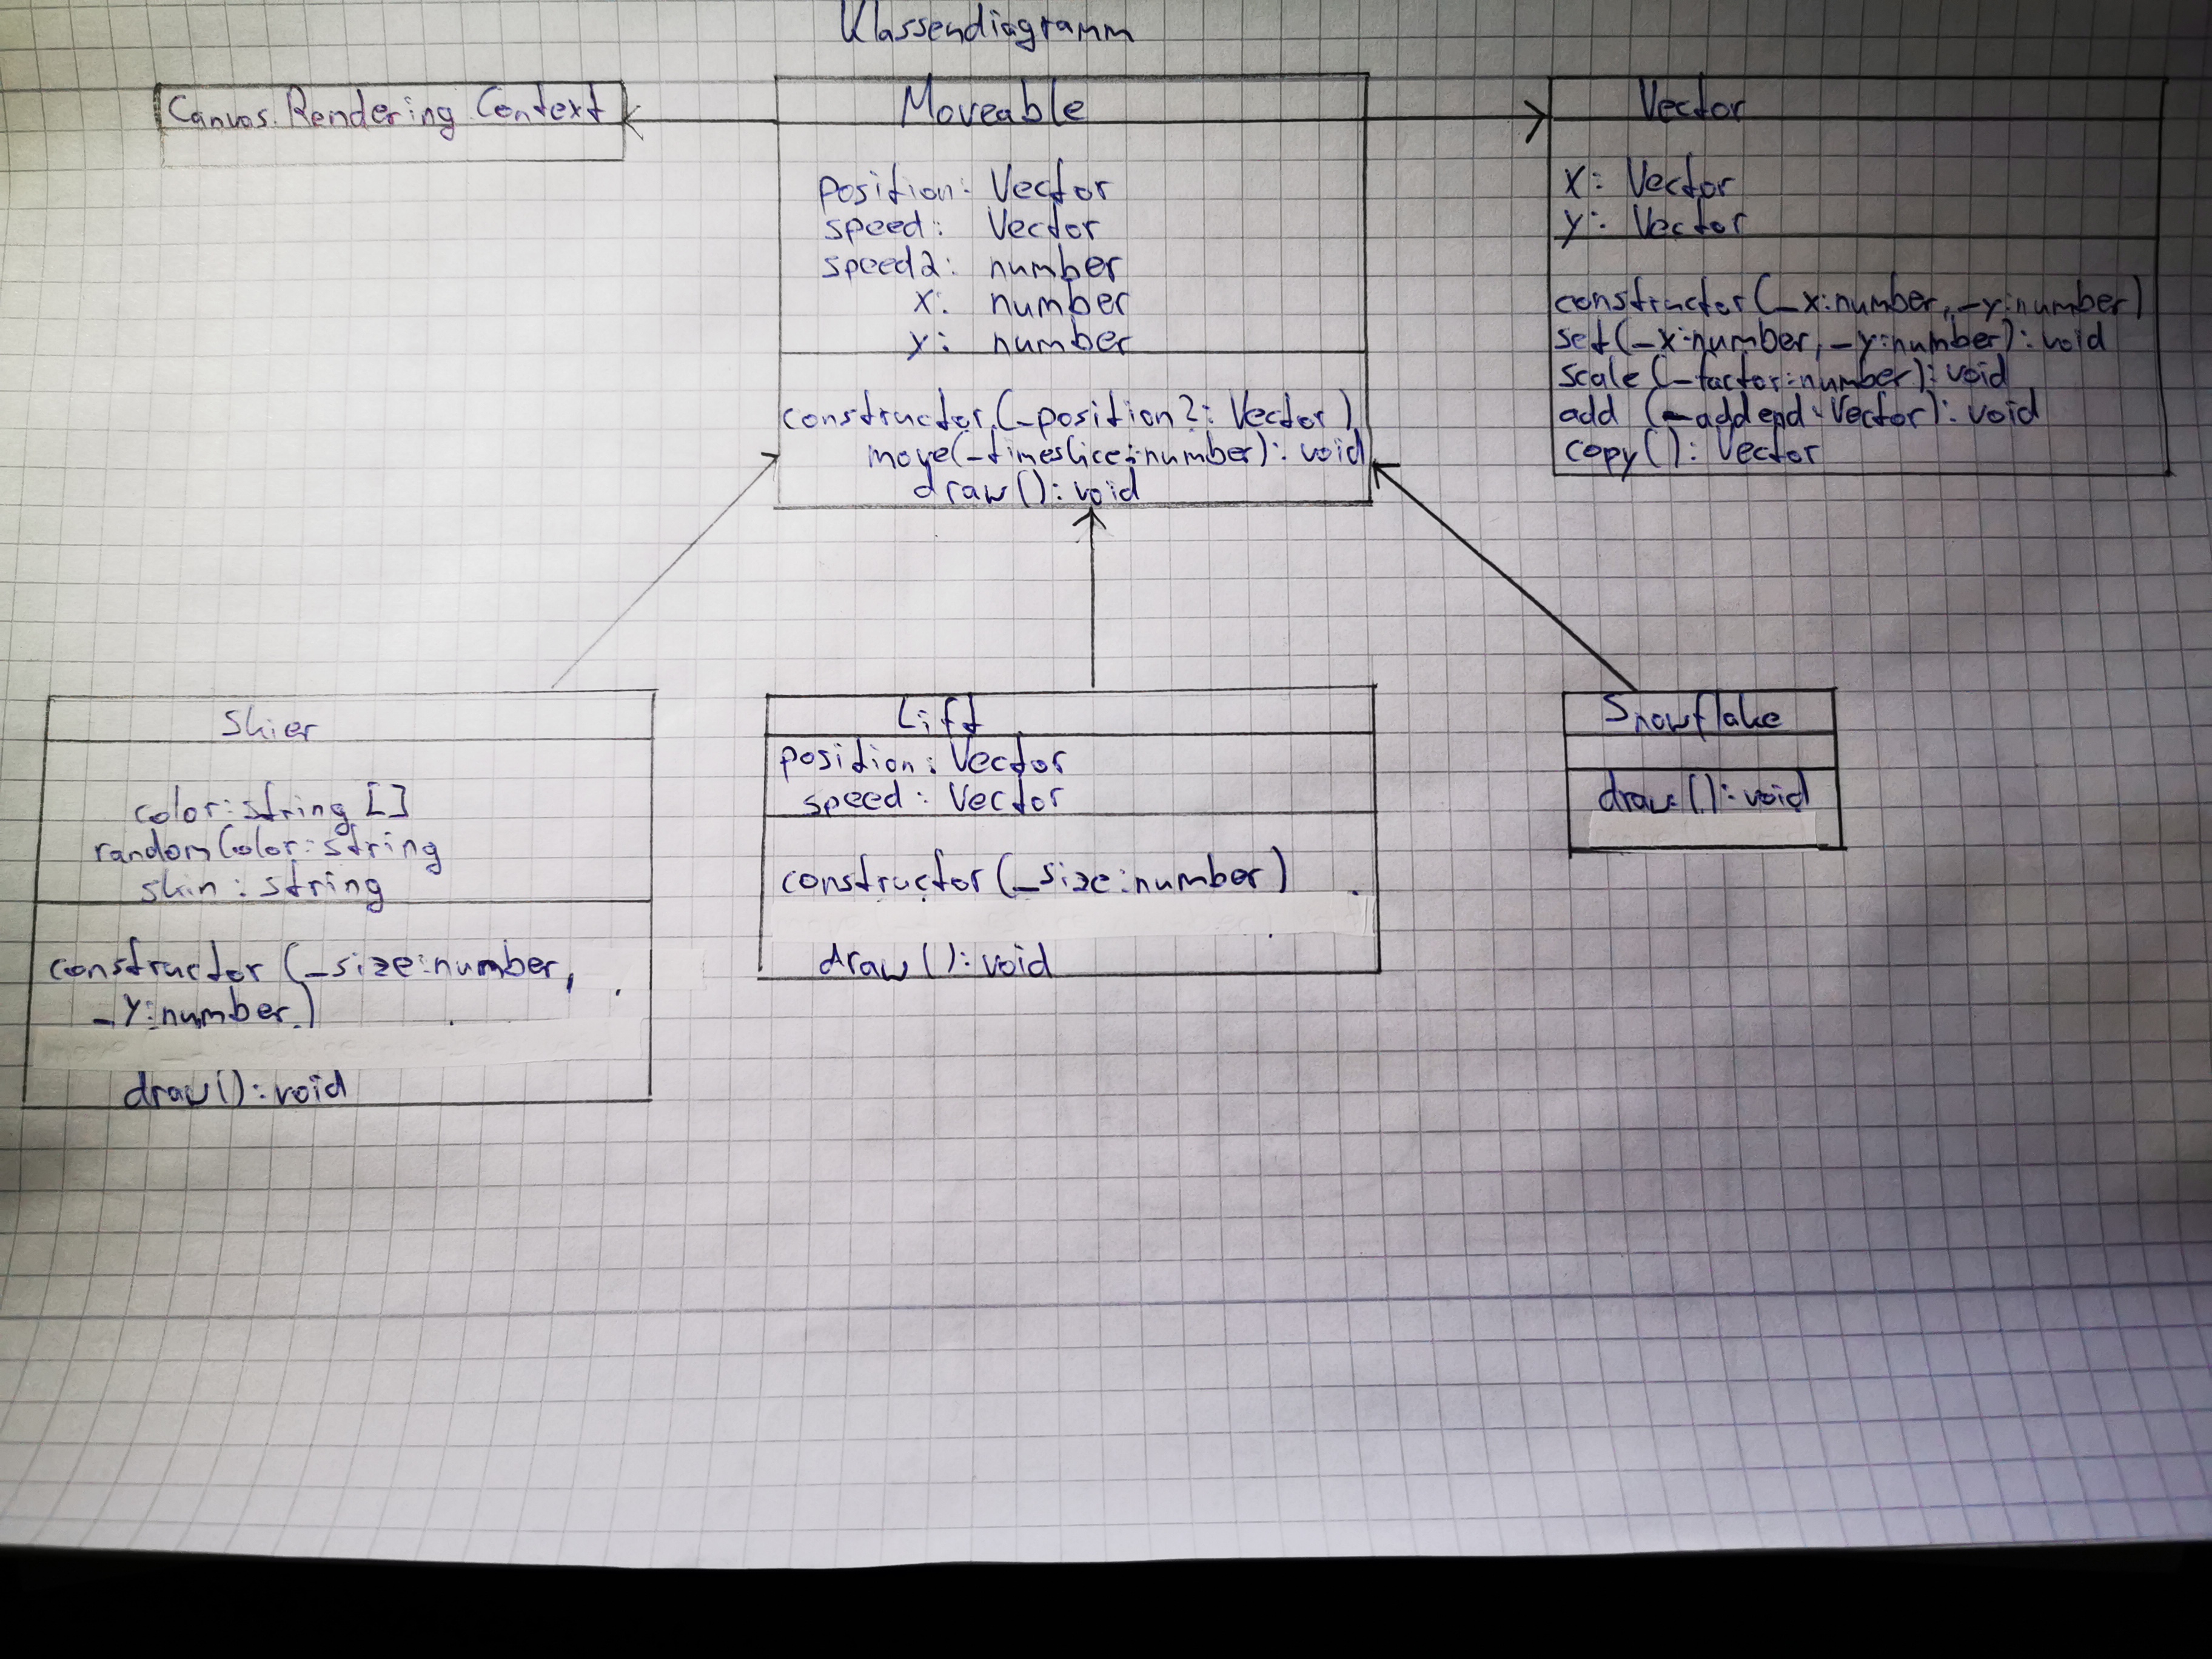 Klassendiagramm
Canvas Rendering Context
Moveable
position: Vector
speed: Vector
speed2: number
x: number
y: number
constructor(_position?: Vector)
move(_timeslice:number): void
draw(): void
Vector
x: Vector
y: Vector
constructor(_x:number, _y:number)
set(_x:number, _y:number): void
scale(_factor:number): void
add (_addend: Vector): void
copy(): Vector
Skier
color: string []
randomColor: string
skin: string
constructor (_size:number,
_y:number)
draw(): void
Lift
position: Vector
speed: Vector
constructor(_size:number)
draw(): void
Snowflake
draw(): void